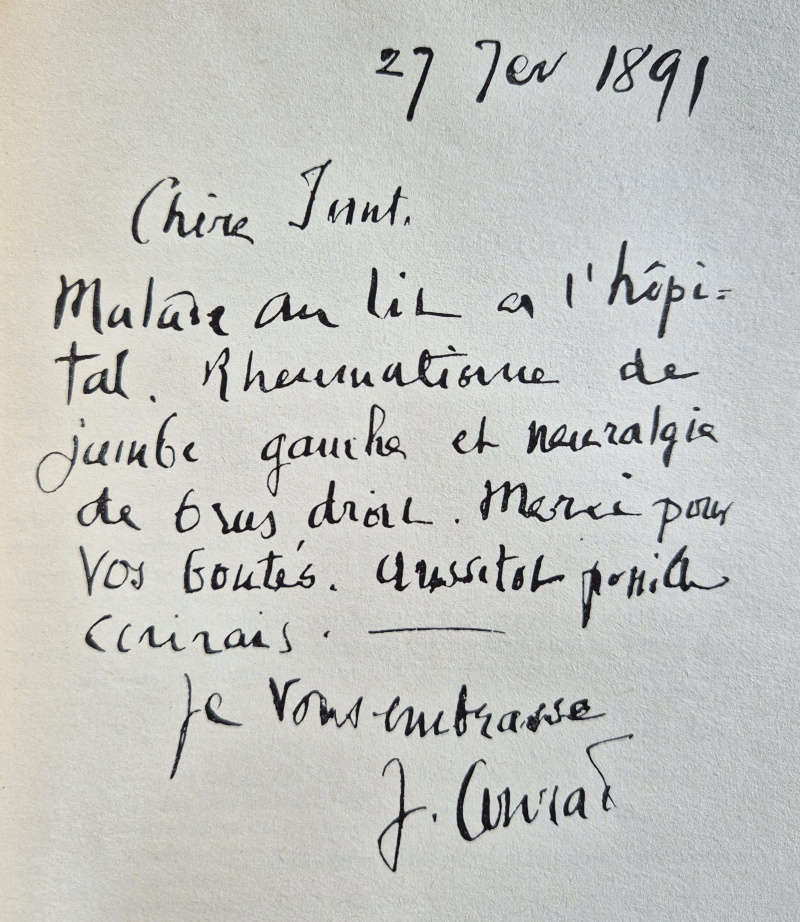 27 Fev 1891
Chère Tant.
Malade au lit a l'hôpi=
tal. Rheumatisme de
jambe gauche et neuralgie
de bras droit. Merci pour
Vos bontés. Aussitot possible
ecrirais. —
Je Vous embrasse
J. Conrad